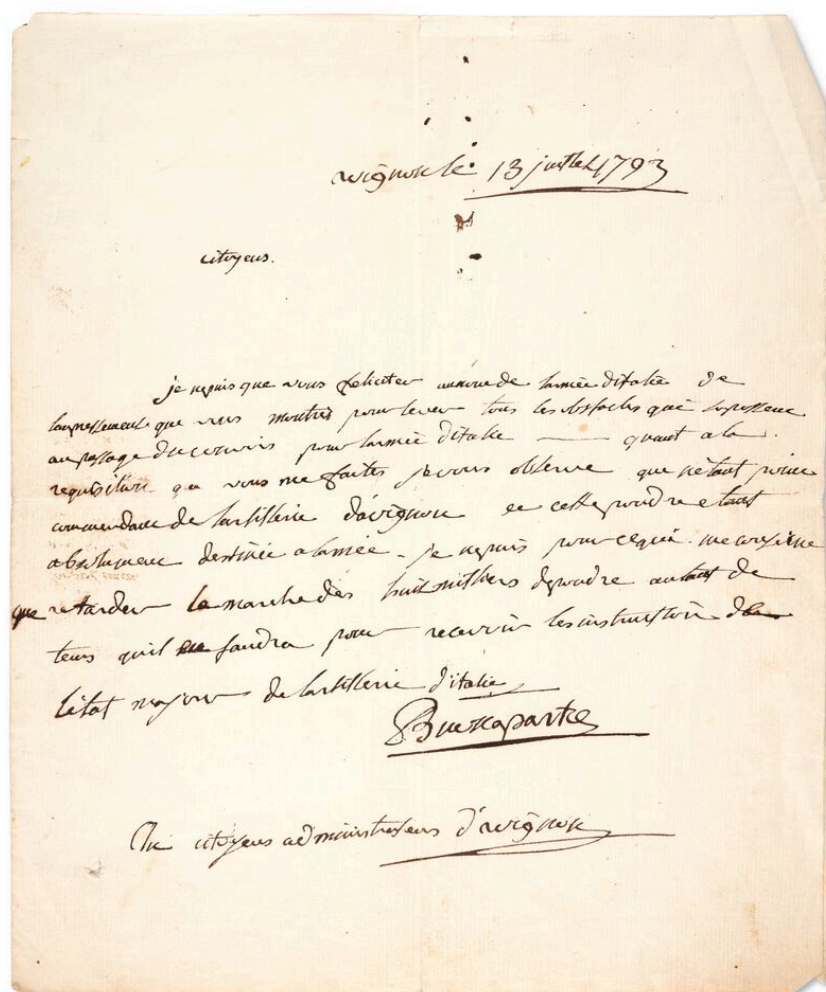 avignon le 13 juillet 1793
citoyens.
je ne puis que vous feliciter au nom de larmée ditalie de
lempressement que vous montres pour lever tous les obstacles qui sopposent
au passage du convois pour larmée ditalie — quant a la
requisition que vous me faites je vous observe que nétant point
commandant de lartillerie d'avignon et cette poudre etant
absolument destinée a larmée - je ne puis pour ce qui me conserne
que retarder la marche des huit milliers de poudre autant de
tems quil faudra pour recevoir les instruction de
létat major de lartillerie d'italie
Buonaparte
citoyens administrateurs d'avignon